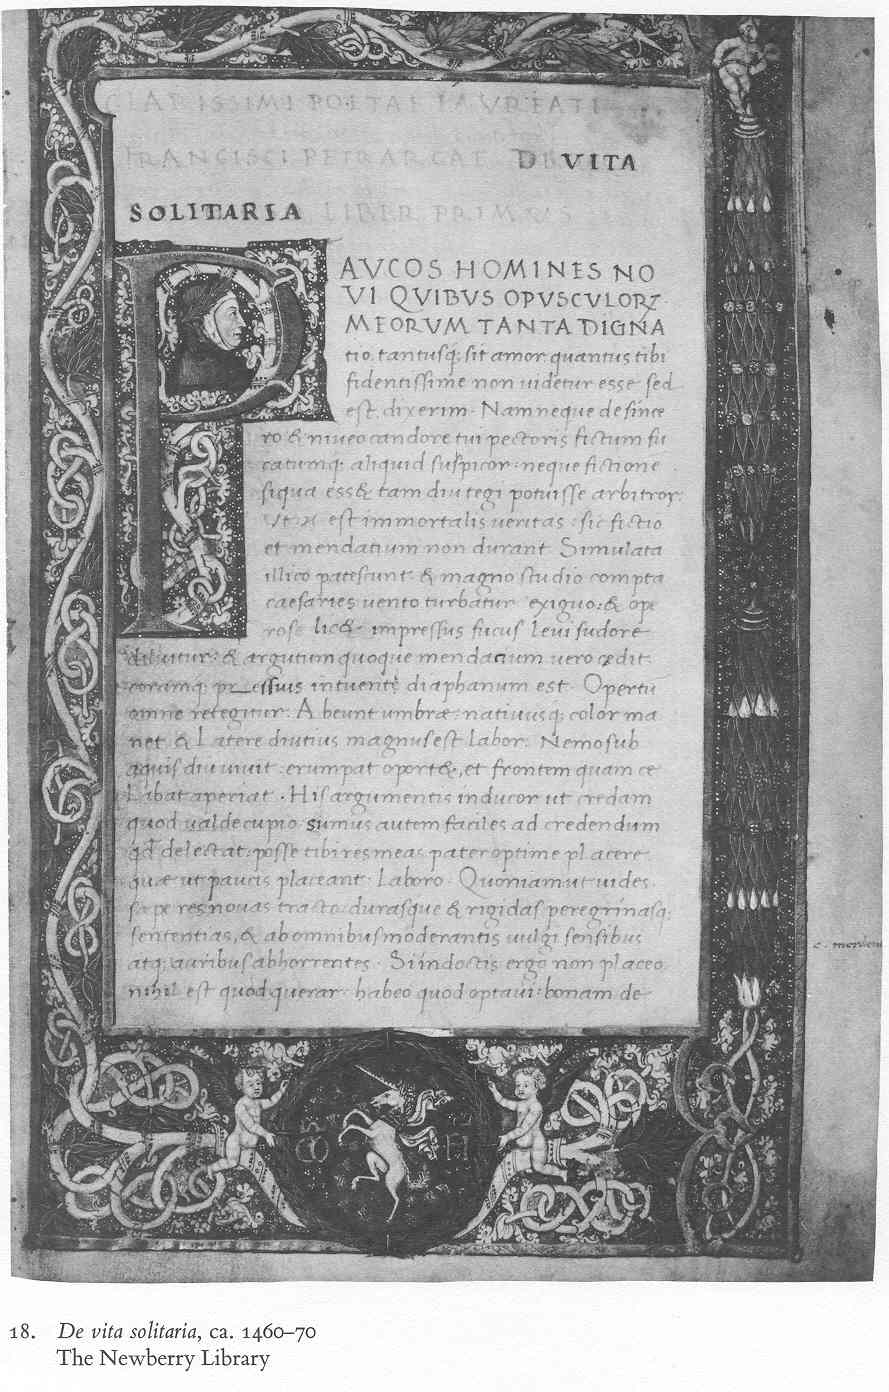 CLARISSIMI POETAE LAVREATI
FRANCISCI PETRARCAE DE VITA
SOLITARIA LIBER PRIMVS
PAVCOS HOMINES NO
VI QVIBVS OPVSCVLORꝜ
MEORVM TANTA DIGNA
tio. tantusq; sit amor quantus tibi
fidentissime non uidetur esse sed
est. dixerim. Nam neque de since
ro & niueo candore tui pectoris fictum fu
catumq; aliquid suspicor. neque fictione
siqua ess& tam diu tegi potuisse arbitror.
est immortalis ueritas. sic fictio
et mendatium non durant. Simulata
illico patescunt. & magno studio compta
caesaries uento turbatur exiguo: & ope
rose lic& impressus fucus leui sudore
diluitur. & argutum quoque mendacium uero cedit.
coramq; pressius intuenti diaphanum est. Opertū
omne retegitur. Abeunt umbræ: natiuusq; color ma
net & Latere diutius magnus est labor. Nemo sub
aquis diu uiuit. erumpat oport&, et frontem quam ce
Labat aperiat. His argumentis inducor ut credam
quod ualde cupio. sumus autem faciles ad credendum
qđ delectat. posse tibi res meas pater optime placere
quæ ut paucis placeant. Laboro. Quoniam ut uides.
sæpe res nouas tracto. durasque & rigidas peregrinasq;
sententias, & ab omnibus moderantis uulgi sensibus
atq; auribus abhorrentes. Si indoctis ergo non placeo
nihil est quod querar. habeo quod optaui. bonam de
18. De vita solitaria, ca. 1460–70
The Newberry Library